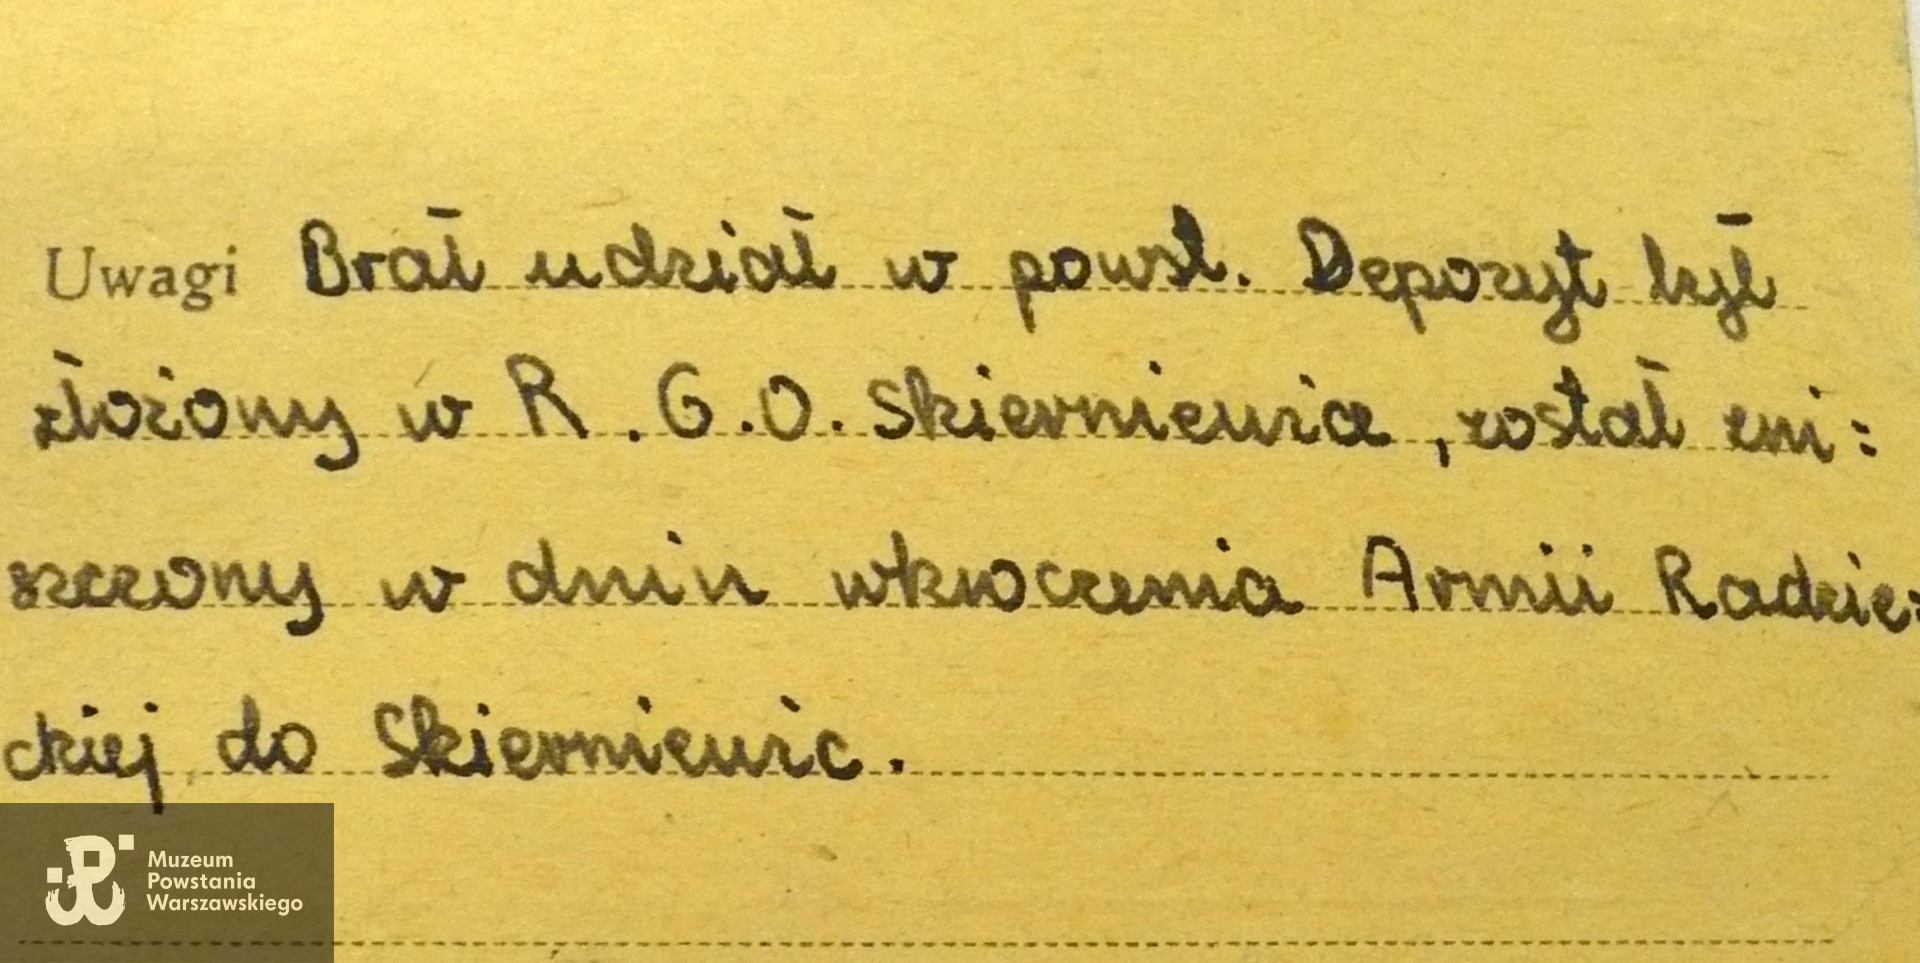 Uwagi Brał udział w powst. Depozyt był
złożony w R.G.O. Skierniewice, został zni=
szczony w dniu wkroczenia Armii Radzie=
ckiej do Skierniewic.
Muzeum
Powstania
Warszawskiego